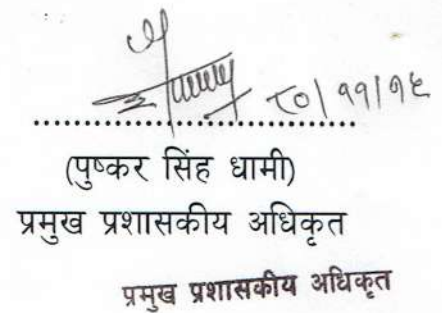 ८०/११/१६
(पुष्कर सिंह धामी)
प्रमुख प्रशासकीय अधिकृत
प्रमुख प्रशासकीय अधिकृत